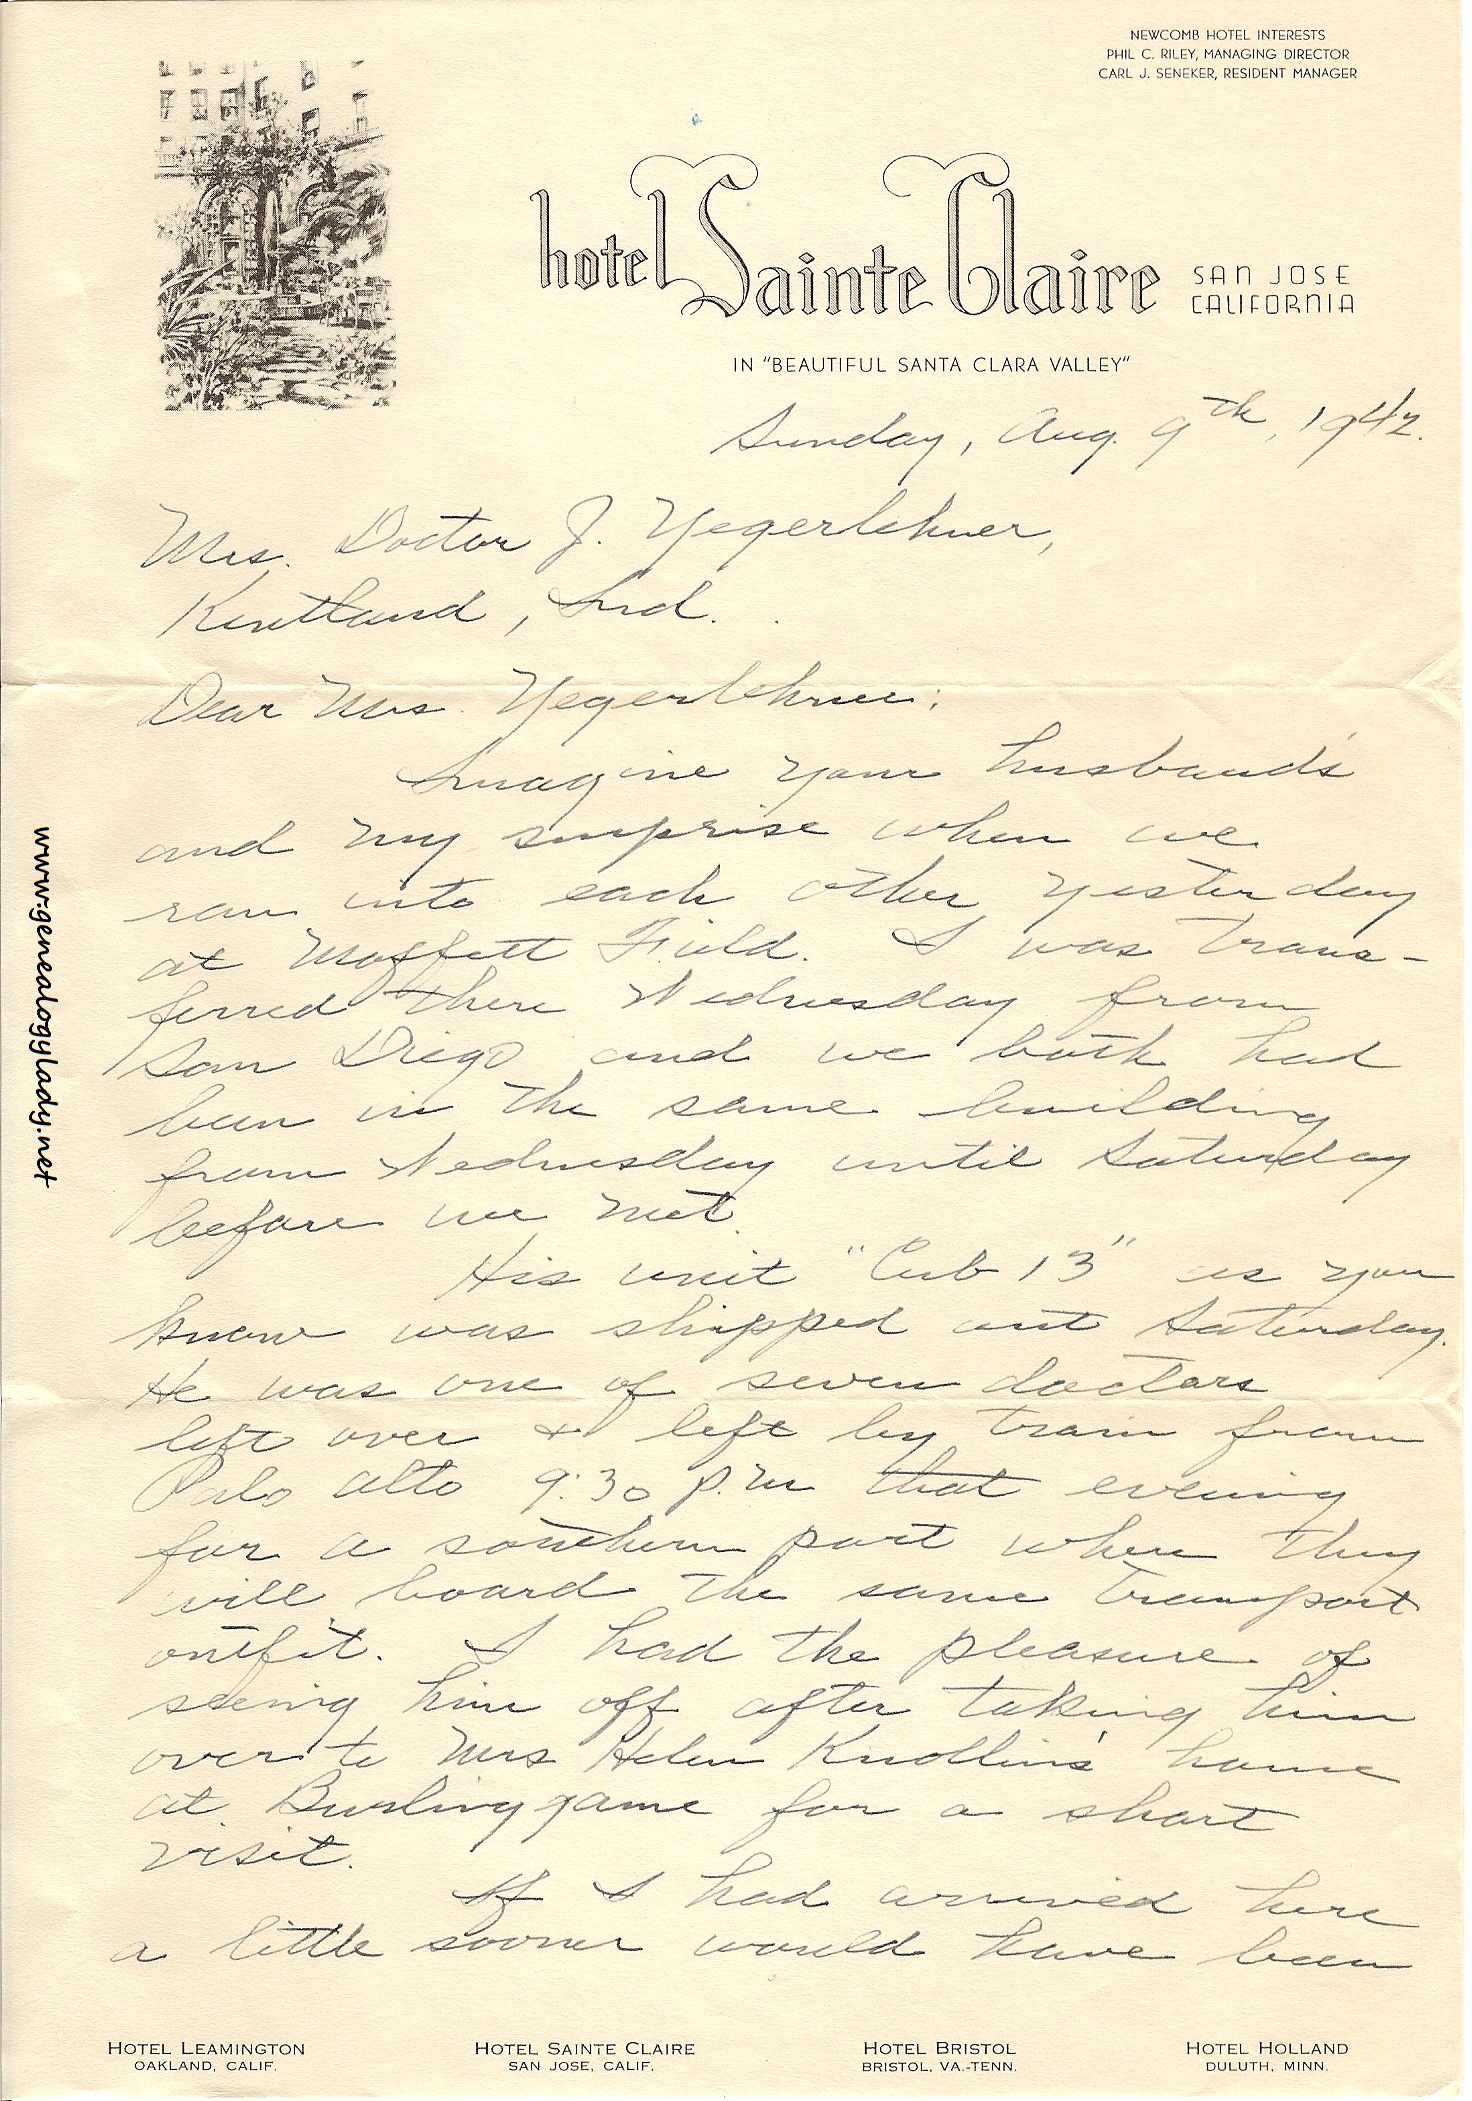 NEWCOMB HOTEL INTERESTS
PHIL C. RILEY, MANAGING DIRECTOR
CARL J. SENEKER, RESIDENT MANAGER
hotel Sainte Claire SAN JOSE
CALIFORNIA
IN "BEAUTIFUL SANTA CLARA VALLEY"
Sunday, Aug. 9th, 1942.
Mrs. Doctor J. Yegerlehner,
Kentland, Ind.
Dear Mrs. Yegerlehner:
Imagine your husband's
and my surprise when we
ran into each other yesterday
at Moffett Field. I was trans-
ferred there Wednesday from
San Diego and we both had
been in the same building
from Wednesday until Saturday
before we met.
His unit "Cub 13" as you
know was shipped out Saturday.
He was one of seven doctors
left over & left by train from
Palo Alto 9:30 p.m that evening
for a southern port where they
will board the same transport
outfit. I had the pleasure of
seeing him off after taking him
over to Mrs Helen Knollin's home
at Burlinggame for a short
visit.
If I had arrived here
a little sooner would have been
HOTEL LEAMINGTON
OAKLAND, CALIF.
HOTEL SAINTE CLAIRE
SAN JOSE, CALIF.
HOTEL BRISTOL
BRISTOL, VA.-TENN.
HOTEL HOLLAND
DULUTH, MINN.
www.genealogylady.net